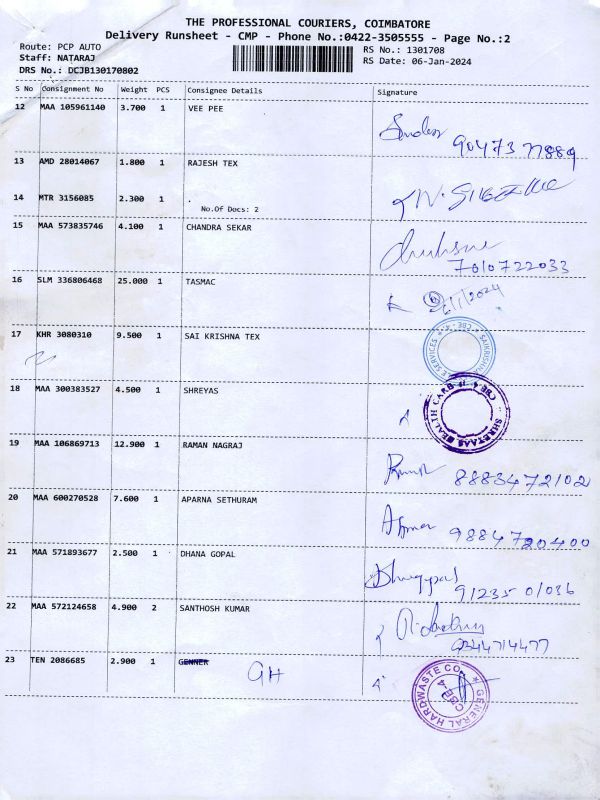 THE PROFESSIONAL COURIERS, COIMBATORE
Delivery Runsheet - CMP - Phone No.:0422-3505555 - Page No.:2
Route: PCP AUTO
RS No.: 1301708
Staff: NATARAJ
RS Date: 06-Jan-2024
DRS No.: DCJB130170802
S No Consignment No Weight PCS Consignee Details Signature
12 MAA 105961140 3.700 1 VEE PEE
13 AMD 28014067 1.800 1 RAJESH TEX
14 MTR 3156085 2.300 1
No.Of Docs: 2
15 MAA 573835746 4.100 1 CHANDRA SEKAR
7010722033
16 SLM 336806468 25.000 1 TASMAC
6/1/2024
17 KHR 3080310 9.500 1 SAI KRISHNA TEX
18 MAA 300383527 4.500 1 SHREYAS
19 MAA 106869713 12.900 1 RAMAN NAGRAJ
8883472102
20 MAA 600270528 7.600 1 APARNA SETHURAM
9884720400
21 MAA 571893677 2.500 1 DHANA GOPAL
91235 01036
22 MAA 572124658 4.900 2 SANTHOSH KUMAR
9344714477
23 TEN 2086685 2.900 1 GENNER
GH
GENERAL HARDWASTE CO.
CBE 4